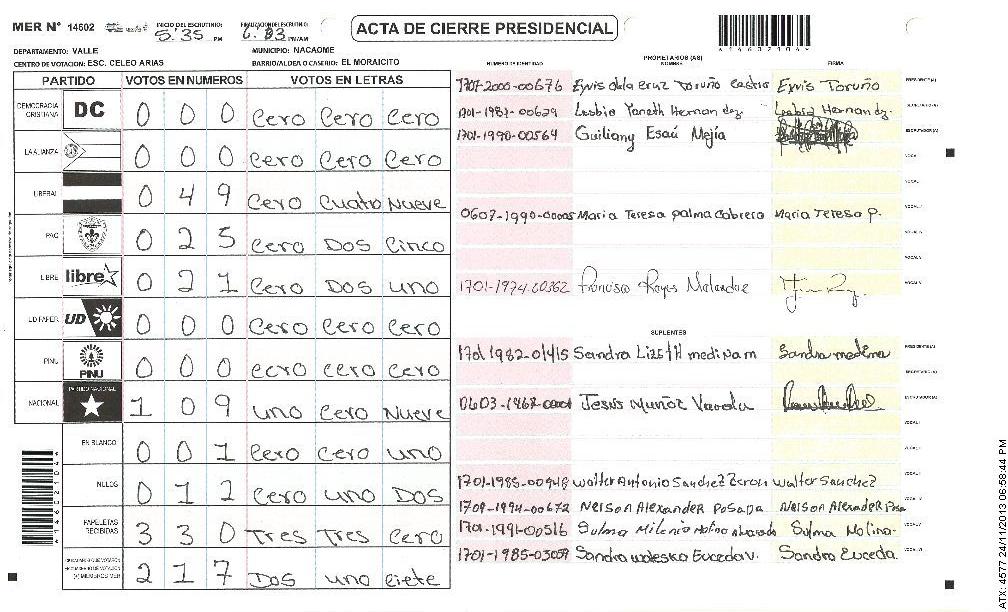 MER N° 14602 INICIO DEL ESCRUTINIO: 5:35 PM FINALIZACION DEL ESCRUTINIO: PM/AM
ACTA DE CIERRE PRESIDENCIAL
DEPARTAMENTO: VALLE MUNICIPIO: NACAOME
CENTRO DE VOTACION: ESC. CELEO ARIAS BARRIO/ALDEA O CASERIO: EL MORAICITO
PARTIDO VOTOS EN NUMEROS VOTOS EN LETRAS
DEMOCRACIA CRISTIANA DC 0 0 0 Cero Cero Cero
LA ALIANZA 0 0 0 Cero Cero Cero
LIBERAL 0 4 9 Cero Cuatro Nueve
PAC 0 2 5 Cero Dos Cinco
LIBRE libre 0 2 1 Cero Dos uno
UD FAPER UD 0 0 0 Cero Cero Cero
PINU PINU 0 0 0 ecro cero Cero
NACIONAL PARTIDO NACIONAL 1 0 9 uno Cero Nueve
EN BLANCO 0 0 1 Cero Cero uno
NULOS 0 1 2 Cero uno Dos
PAPELETAS RECIBIDAS 3 3 0 Tres Tres Cero
2 1 7 Dos uno ciete
PROPIETARIOS (AS)
NUMERO DE IDENTIDAD NOMBRE FIRMA
1707-2000-00676 Eynis dela cruz Toruño Castro Eynis Toruño PRESIDENTE(A)
1701-1987-00629 Lesbia Yaneth Hernandez Lesbia Hernandez SECRETARIO(A)
1701-1990-00564 Guiliany Esaú Mejía ESCRUTADOR(A)
VOCAL I
VOCAL II
Maria Teresa palma Cabrera Maria Teresa p.
VOCAL V
1701-1974-00362 Francisco Reyes
SUPLENTES
Sandra Lizeth medina m Sandra medina PRESIDENTE(A)
SECRETARIO(A)
Jesus Muñoz ESCRUTADOR(A)
VOCAL I
VOCAL II
1701-1985-00948 Walter Antonio Sanchez walter Sanchez
1709-1994-00672 Nelson Alexander Posada Nelson Alexander
1701-1991-00516 Sulma Molina Sulma Molina
1701-1985-03059 Sandra waleska Euceda v. Sandra Euceda.
ATX: 4577 24/11/2013 06:58:44 PM